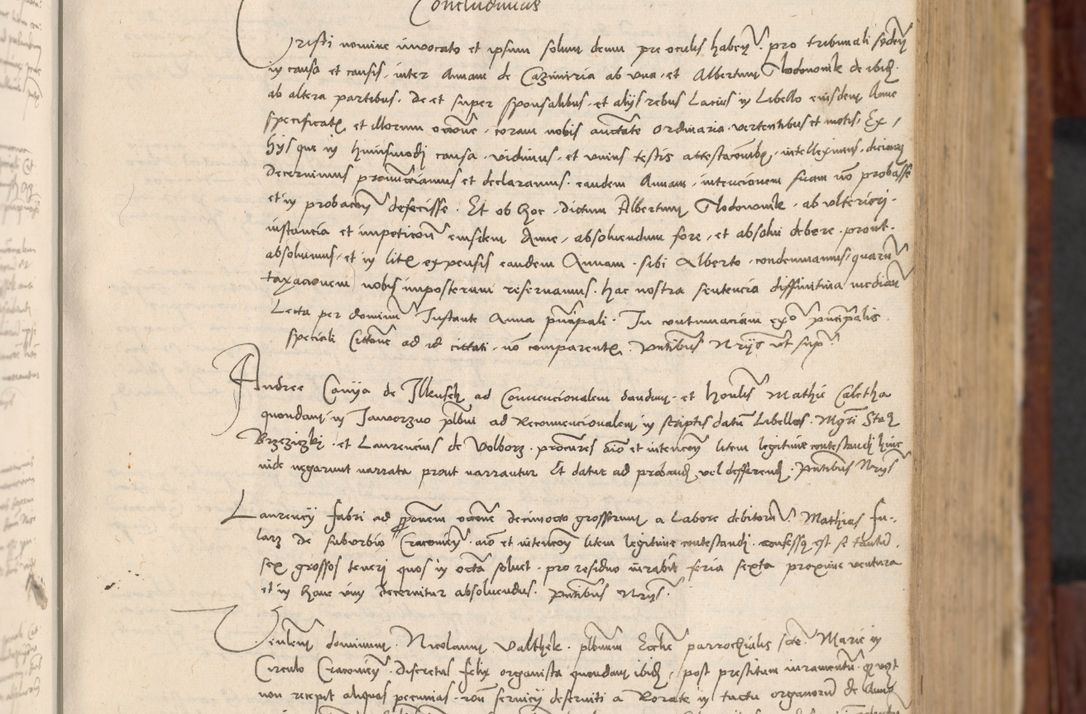 Concludimus
Cristi nomine invocato et ipsum solum deum pre oculis haben pro tribunali seden
in causa et causis, inter Annam de Cazimiria ab una, et Albertum Modownik de ibid.
ab altera partibus, de et super sponsalibus, et alijs rebus Lacius in Libello eiusdem Anne
specificatis et illorum occone, coram nobis auctate ordinaria vertentibus et motis, Ex
hijs que in huiusmodi causa vidimus, et unius testis attestacionibus, intelleximus, dicimus
Decernimus pronunciamus et declaramus, eandem Annam, intencionem suam non probasse
et in probacione defecisse. Et ob hoc, dictum Albertum Modownik, ab ulteriori
instancia et impeticion eiusdem Anne, absolvendum fore, et absolvi debere, prout
absolvimus, et in litis expensis eandem Annam, sibi Alberto, condemnamus, quarum
taxacionem nobis imposterum reservamus, hac nostra sentencia diffinitiva median
Lecta per dominum Instante Anna principali. In contumaciam ex principalis
speciali Cittone ad id cittati, non comparentis. Pntibus Nrijs ut supra
Andree de Ilkusch ad Convencionalem dandum, et honlis Mathie Caletha
quondam in Jaworzno plbni ad Reconvencionalem in scriptis datum Libellos. Mgri Sta
Brzeziczki, et Laurencius de Volborz, procures aio et intencon litem legitime contestandi hinc
inde negarunt narrata prout narrantur Et datur ad proband vel differend. Pntibus Nrijs
Laurencij fabri ad pponem occone decimocto grossorum a Labore debitorum Mathias fa-
larz de suburbio Cracovien, aio et intencon litem legitime contestandi, confessus est se tantum
sex grossos teneri quos in octa solvet, pro residuo iurabit feria sexta proxime ventura
et in hanc vim decernitur absolvendus. Pntibus Nrijs.
Venlem dominum Nicolaum Valthek, plbnum Ecclie parrochialis scte Marie in
Circulo Cracovien, Discretus felix organista quondam ibid, post prestitum iuramentum, quod
non recepit aliquas pecunias, ron servicij deserviti a Rorate in tactu organorum de Anno